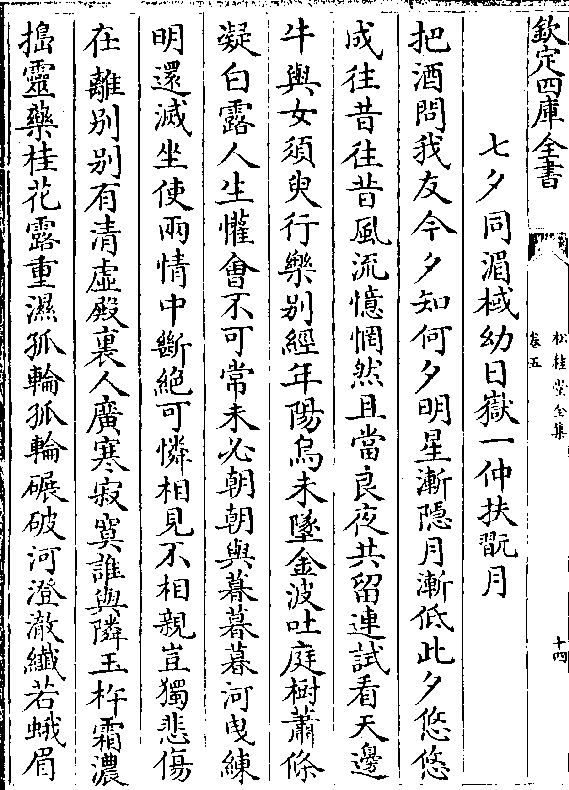 欽定四庫全書
松桂堂全集
卷五
十四
七夕同湄棫幼日嶽一仲扶翫月
把酒問我友今夕知何夕明星漸隱月漸低此夕悠悠
成往昔往昔風流憶惘然且當良夜共留連試看天邊
牛與女須臾行樂別經年陽烏未墜金波吐庭樹蕭條
凝白露人生懽會不可常未必朝朝與暮暮暮河曳練
明還滅坐使兩情中斷絕可憐相見不相親豈獨悲傷
在離別別有清虛殿裏人廣寒寂寞誰與隣玉杵霜濃
搗靈藥桂花露重濕孤輪孤輪碾破河澄澈纖若蛾眉